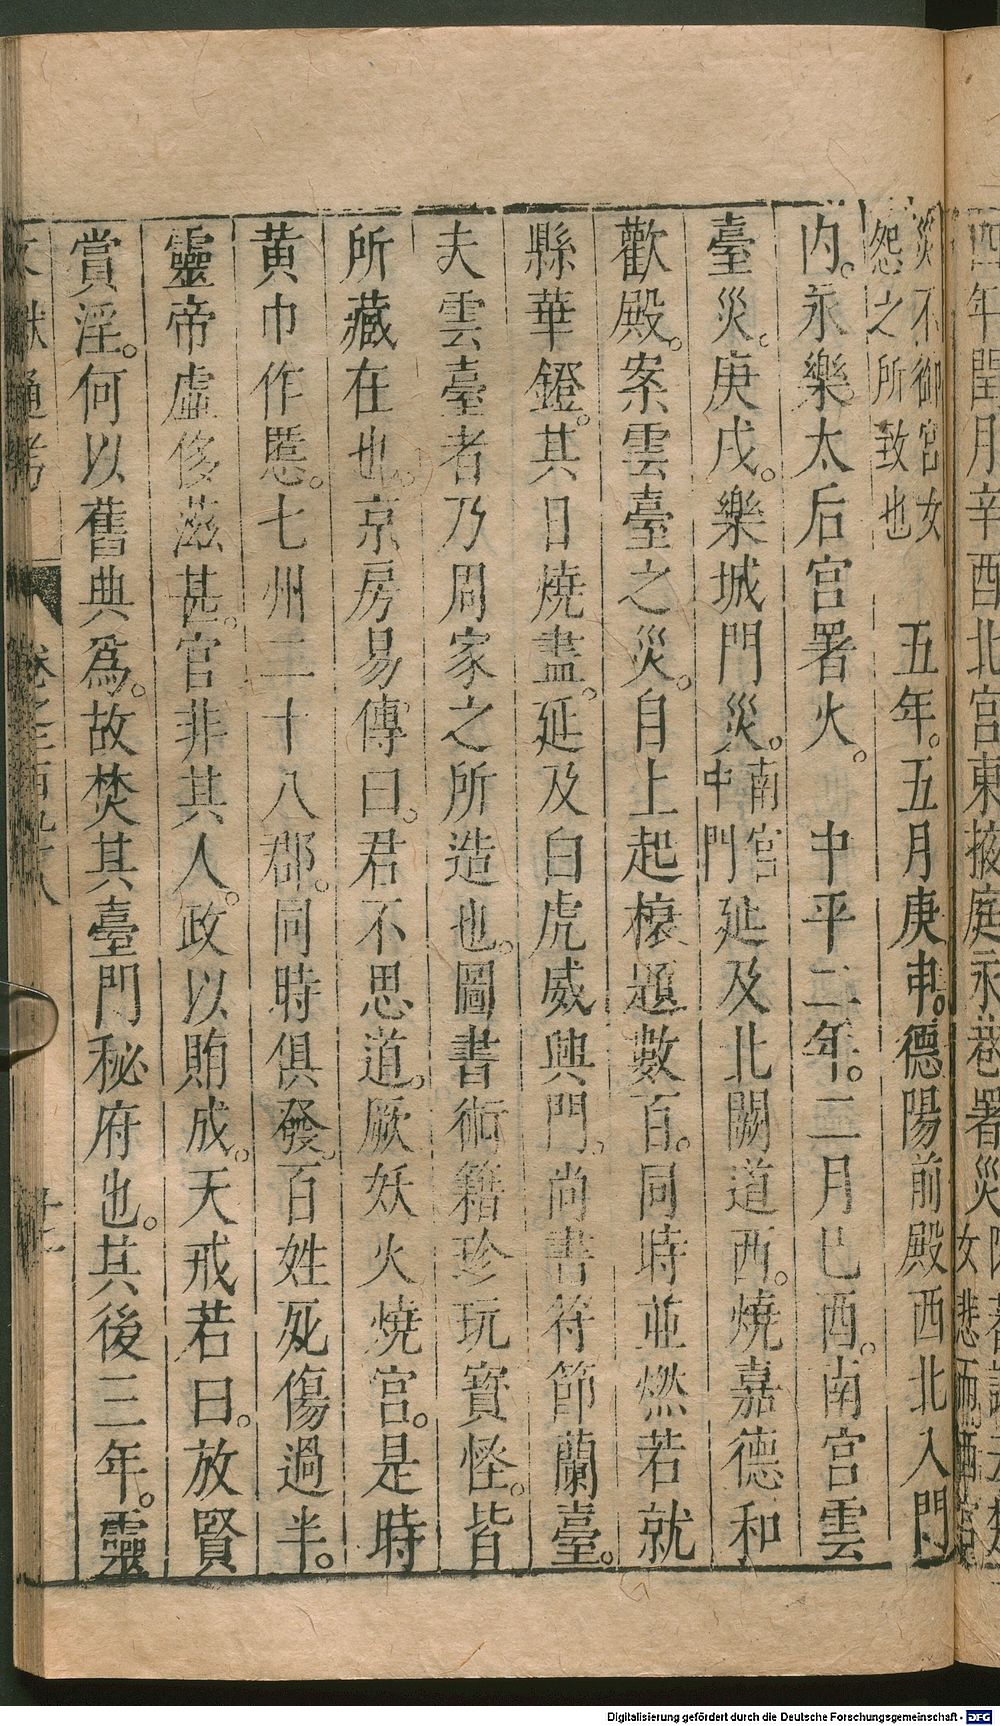 四年閏月辛酉北宮東掖庭永巷署災
災不御宮女
怨之所致也
五年。五月庚申。德陽前殿西北入門
内。永樂太后宮署火。 中平二年。二月巳酉。南宮雲
臺災。庚戌。樂城門災。南宮中門延及北闕道西。燒嘉德和
歡殿。案雲臺之災。自上起榱題數百。同時並燃若就
縣華鐙。其日燒盡。延及白虎威興門。尚書符節蘭臺。
夫雲臺者乃周家之所造也。圖書術籍珍玩寳怪。皆
所藏在也。京房易傳曰。君不思道。厥妖火燒宮。是時
黄巾作慝。七州二十八郡。同時俱發。百姓死傷過半。
靈帝虛侈滋甚。官非其人。政以賄成。天戒若曰。放賢
賞淫。何以舊典爲。故焚其臺門秘府也。其後三年。靈
文獻通考 卷之二百九十八
Digitalisierung gefördert durch die Deutsche Forschungsgemeinschaft - DFG